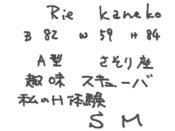 Rie kaneko
B 82 W 59 H 84
A型 さそり座
趣味 スキューバ
私のH体験
S M